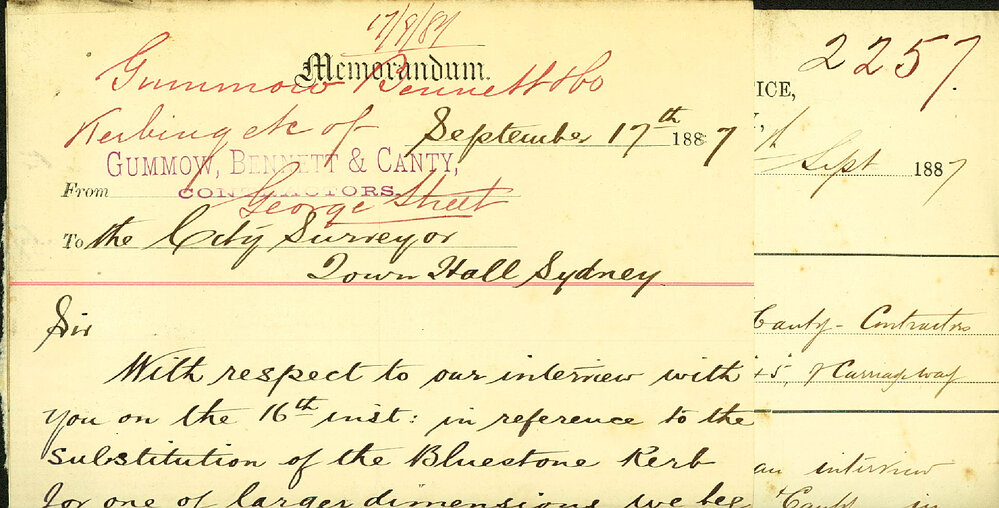 17/9/87
Memorandum.
Gummow Bennett & Co
Kerbing etc of
September 17th 1887
GUMMOW, BENNETT & CANTY,
From CONTRACTORS.
George Street
To the City Surveyor
Town Hall Sydney
Sir
With respect to our interview with
you on the 16th inst: in reference to the
substitution of the Bluestone Kerb
for one of larger dimensions we beg
2257.
ICE,
th Sept 1887
Canty - Contractors
Carriageway
an interview
Canty in